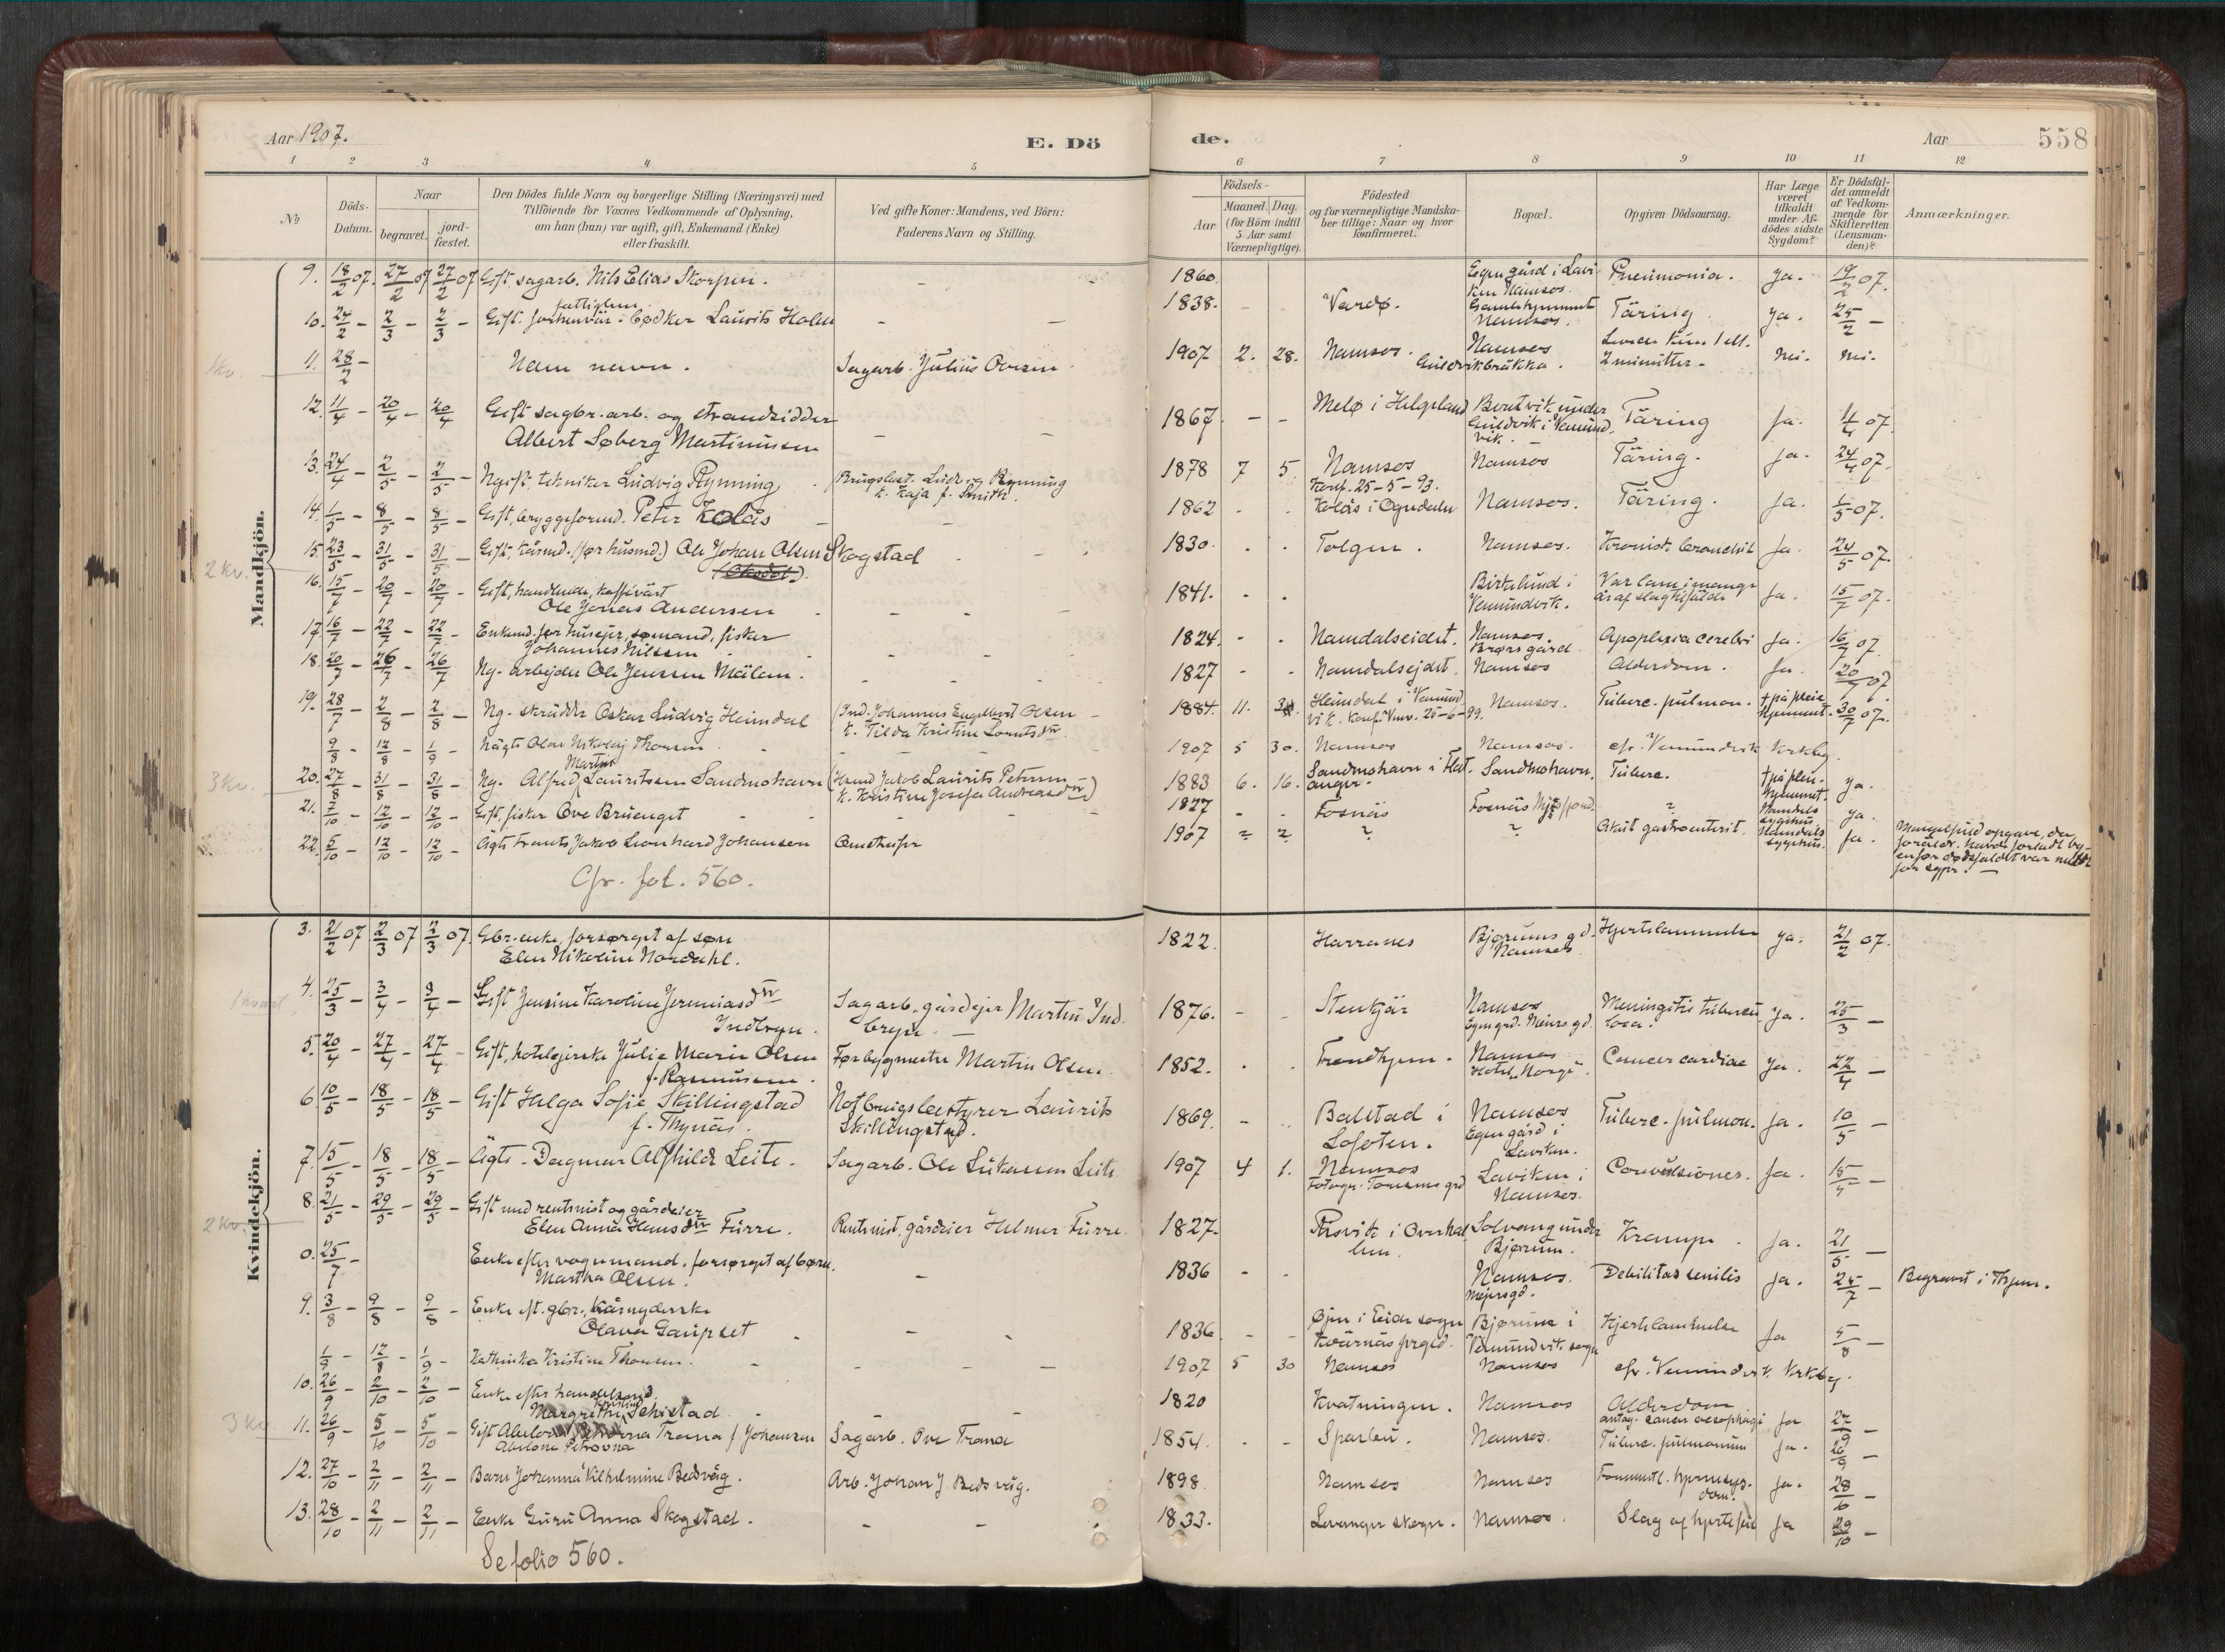 Aar 1907.
E. Dö
de.
Aar
558
1 2 3 4 5 6 7 8 9 10 11 12
No
Döds-
Datum.
Naar
begravet.
jord-
fæstet.
Den Dödes fulde Navn og borgerlige Stilling (Næringsvei) med
Tilföiende for Voxnes Vedkommende af Oplysning,
om han (hun) var ugift, gift, Enkemand (Enke)
eller fraskilt.
Ved gifte Koner: Mandens, ved Börn:
Faderens Navn og Stilling.
Födsels-
Aar
Maaned. Dag.
(for Börn indtil
5 Aar samt
Værnepligtige).
Födested
og for værnepligtige Mandska-
ber tillige: Naar og hvor
konfirmeret.
Bopæl.
Opgiven Dödsaarsag.
Har Læge
været
tilkaldt
under Af-
dödes sidste
Sygdom?
Er Dödsfal-
det anmeldt
af Vedkom-
mende for
Skifteretten
(Lensman-
den)?
Anmærkninger.
Mandkjön.
9. 18/2 07. 27/2 07 27/2 07 Gift sagarb. Nils Elias Skorpen. - - 1860. Egen gård i Lavi-
ken Namsos. Pneumonia. Ja. 19/2 07.
10. 24/2 - 2/3 - 2/3 - Gift. bødker Laurits Holm - - 1838. - Vardø. Gamlehjemmet
Namsos. Täring. Ja. 25/2 -
1 kv.
11. 28/2 - Uden navn. Sagarb. Julius Ovesen. 1907 2. 28. Namsos. Namsos
Guldvikbrakka. 2 minutter. Nei. Nei.
12. 11/4 - 20/4 - 20/4 Gift sagbr. arb. og strandsidder
Albert Søberg Martinussen - - 1867. - - Melø i Helgeland Beretvik under
Guldvik i Vemund-
vik. Täring Ja. 11/4 07.
13. 24/4 - 2/5 - 2/5 - Ugift, tekniker Ludvig Rynning. Brugsbest. Ludvig Rynning
k. Kaja f. Smith. 1878 7 5 Namsos
Konf. 25-5-93. Namsos Täring. Ja. 24/4 07.
14. 1/5 - 8/5 - 8/5 - Gift, bryggeformd. Peter Kolås - - 1862 - - Kolås i Ogndalen Namsos. Täring. Ja. 1/5 07.
2 kv.
15. 23/5 - 31/5 - 31/5 - Gift. kårmd. (før husmd.) Ole Johan Olsen Skogstad - - 1830. - - Tolgen. Namsos. Kronisk bronchit Ja. 24/5 07.
16. 15/7 - 20/7 - 20/7 - Gift, handlende, kaffivärt
Ole Jonas Andersen - - - 1841. - - Birkelund i
Vemundvik. Var lam i mange
år af slagtilfälde Ja. 15/7 07.
17. 16/7 - 22/7 - 22/7 - Enkemd. før husejer, sømand, fisker
Johannes Nilssen - - - 1824. - - Namdalseidet. Namsos.
Brørs gård Apoplexia cerebri Ja. 16/7 07.
18. 20/7 - 26/7 - 26/7 Ug. arbejder Ole Jenssen Mälan. - - - 1827 - - Namdalsejdet. Namsos Alderdom. Ja. 20/7 07
19. 28/7 - 2/8 - 2/8 - Ug. skrädder Oskar Ludvig Heimdal (Ind. Johannes Engelbert Olsen
k. Tilda Kristine Lorntsdtr. 1884. 11. Heimdal i Vemund-
vik. Konf. Vmv. 25-6-99. Namsos. Tuberc. pulmon. † på pleie-
hjemmet. 30/7 07.
9/8 - 12/8 - 1/9 - Uägte Olav Nikolaj Thorsen. - - - 1907 5 30. Namsos Namsos. cfr. Vemundvik Krkbg.
3 kv.
20. 27/8 - 31/8 - 31/8 - Ug. Alfred Martin Lauritssen Sandmohavn (Husmd Jakob Laurits Petersen
k. Kristine Josefa Andreasdtr) 1883 6. 16. Sandmohavn i Flat-
anger. Sandmohavn. Tuberc. † på plei-
hjemmet. Ja.
21. 7/10 - 12/10 - 12/10 - Gift, fisker Ove Bruenget - - - 1827 - - Fosnäs Fosnäs ? Namdals
sygehus. Ja.
22. 5/10 - 12/10 - 12/10 - Ägte Frants Jakob Leonhard Johansen 1907 ? ? ? ? Akut gastroenterit. Namdals
sygehus. Ja. Mangelfuld opgave, da
foräldr. havde forladt by-
en før dødsfaldet var meldt
for sgpr. -
Cfr. fol. 560.
Kvindekjön.
3. 21/2 07 2/3 07 2/3 07. Gbr. enke, forsørget af søn
Elen Nikoline Nordahl. 1822. Harranes Bjørums gd.
Namsos Hjertelammelse Ja. 21/2 07.
4. 25/3 - 3/4 - 3/4 - Gift Jensine Karoline Jeremiasdtr
Indbryn. Sagarb., gårdejer Martin Ind-
bryn. - 1876. - - Stenkjär Namsos
Egen grd. Meiers gd. Meningitis tubercu-
losa. Ja. 25/3 -
5. 20/4 - 27/4 - 27/4 - Gift, hotelejerske Julie Marie Olsen
f. Rasmussen. Før bygmester Martin Olsen. 1852. - - Trondhjem. Namsos
Hotel Norge. Cancer cardiae Ja. 22/4 -
6. 10/5 - 18/5 - 18/5 - Gift Helga Sofie Skillingstad
f. Thynäs. Notbrugsbestyrer Laurits
Skillingstad. 1869. - - Balstad i
Lofoten. Namsos
Egen gård i
Laviken. Tuberc. pulmon. Ja. 10/5 -
7. 15/5 - 18/5 - 18/5 - Ägte. Dagmar Alfhild Leite. Sagarb. Ole Lukassen Leite 1907 4 1. Namsos Laviken i
Namsos. Convulsiones. Ja. 15/5 -
2 kv.
8. 21/5 - 29/5 - 29/5 - Gift med rentenist og gårdeier
Elen Anna Hansdtr Furre. Rentenist, gårdeier Helmer Furre. 1827. Risvik i Overhal-
len. Solvang under
Bjørum. Krampe. Ja. 21/5 -
0. 25/7 - Enke efter vognmand, forsørget af børn.
Martha Olsen. - 1836 - - Namsos.
Meiersgd. Debilitas senilis Ja. 25/7 - Begravet i Thjem.
9. 3/8 - 9/8 - 9/8 - Enke eft. gbr., kårnyderske
Olava Gaupset - - - 1836. - - Øjen i Eide sogn
Kvärnäs prgjld. Bjørum i
Vemundvik sogn Hjertelammelse Ja 5/8 -
1/9 - 12/8 - 1/9 - Kathinka Kristine Thorsen. - - - 1907 5 30 Namsos Namsos cfr. Vemundvik Krkbg.
10. 26/9 - 2/10 - 2/10 - Enke efter handelsmd.
Margrethe Kristine Sehistad 1820 Kvatningen. Namsos Alderdom
antag. cancer oesophagi Ja 27/9 -
3 kv.
11. 26/9 - 5/10 - 5/10 - Gift Trana f. Johansen
Abelone Petrovna Sagarb. Ove Trana 1854. - - Sparbu. Namsos. Tuberc. pulmonum Ja. 26/9 -
12. 27/10 - 2/11 - 2/11 - Barn Johanna Vilhelmine Bedsvåg. Arb. Johan J Bedsvåg. 1898. Namsos Namsos hjernesyg-
dom. Ja. 28/10 -
13. 28/10 - 2/11 - 2/11 - Enke Guru Anna Skogstad. - - 1833. Levanger skogn. Namsos. Slag af hjertefeil Ja 29/10 -
Se folio 560.